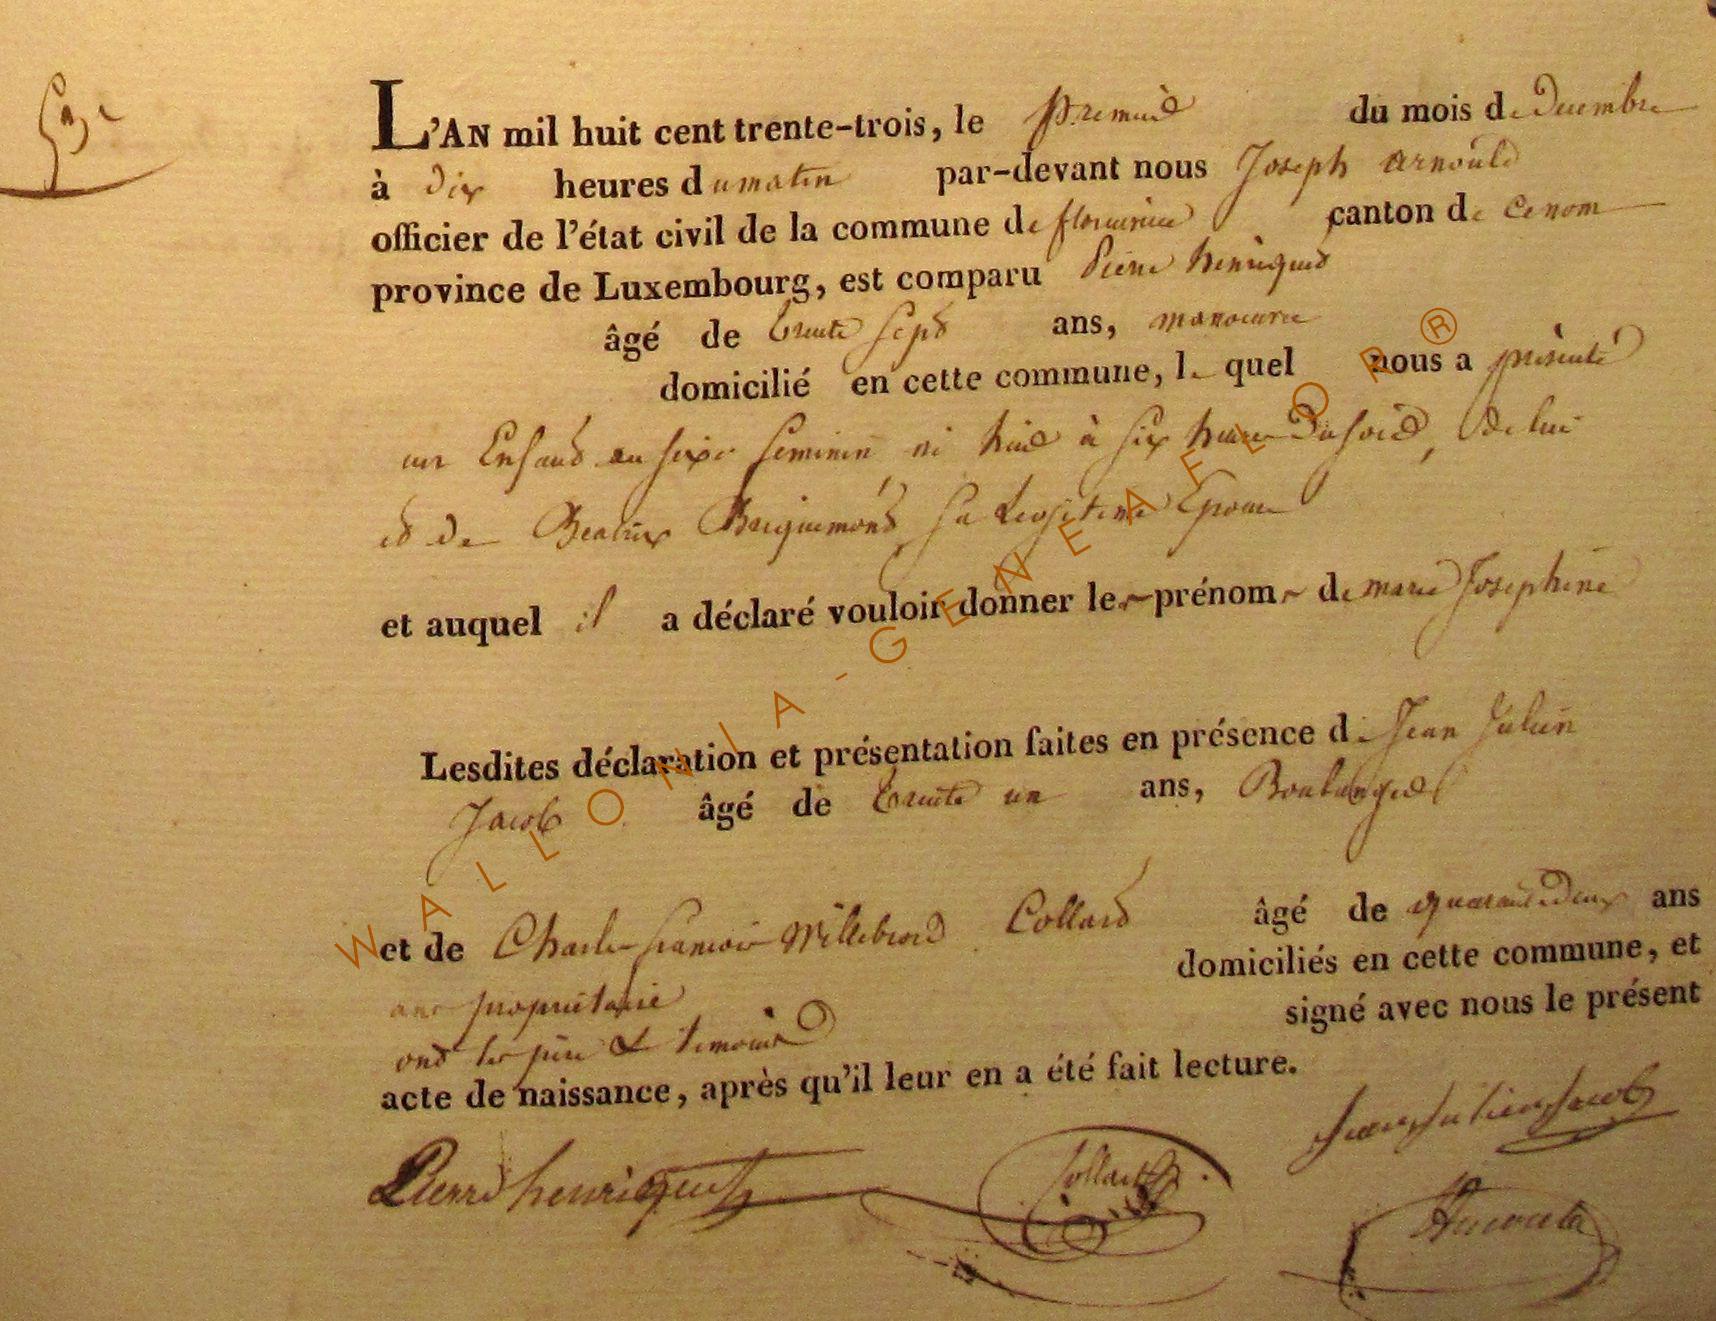 L'AN mil huit cent trente-trois, le premier du mois de Decembre
à dix heures du matin par-devant nous Joseph arnould
officier de l'état civil de la commune de florenville canton de
province de Luxembourg, est comparu Pierre henriquet
âgé de trente sept ans, manoeuvre
domicilié en cette commune, le quel nous a présenté
un Enfant du sexe feminin né hier à six heures Du soir, de lui
et de Beatrix Briquemont Sa Legitime Epouse
et auquel il a déclaré vouloir donner les prénoms de marie Josephine
Lesdites déclaration et présentation faites en présence de Jean Julien
Jacob âgé de trente un ans, Boulanger
et de Charles francois Willebrord Collard âgé de quarante deux ans
ans propriétaire domiciliés en cette commune, et
ont les père & temoins signé avec nous le présent
acte de naissance, après qu'il leur en a été fait lecture.
Jean Julien Jacob
Pierre henriquet Collard
WALLONIA-GENEAFLOR®